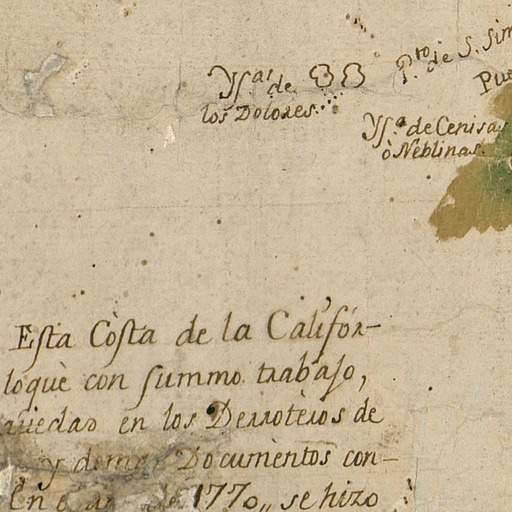 Yſas de
los Dolores.
Pto de S. Sim
Pue
Yſa de Cenisas
ò Neblinas.
Esta Còsta de la Califór-
loquè con summo trabajo,
en los Derrotèros de
y demas Documèntos con-
En 1770,, se hizo